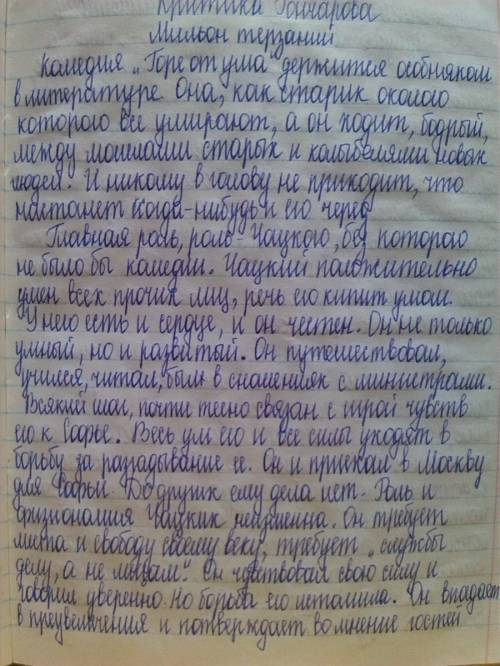 Критика Гончарова
Мильон терзаний
Комедия „Горе от ума" держится особняком
в литературе. Она, как старик около
которого все умирают, а он ходит, бодрый,
между могилами старых и колыбелями новых
людей. И никому в голову не приходит, что
настанет когда-нибудь и его черед
Главная роль, роль - Чацкого, без которого
не было бы комедии. Чацкий положительно
умен всех прочих лиц, речь его кипит умом.
У него есть и сердце, и он честен. Он не только
умный, но и развитый. Он путешествовал,
учился, читал, был в сношениях с министрами.
Всякий шаг, почти тесно связан с игрой чувств
его к Софье. Весь ум его и все силы уходят в
борьбу за разгадывание ее. Он и приехал в Москву
для Софьи. До других ему дела нет. Роль и
физиономия Чацких неизменна. Он требует
места и свободу своему веку, требует „службы
делу, а не лицам". Он чувствовал свою силу и
говорил уверенно. Но борьба его истомила. Он впадает
в преувеличения и потверждает во мнение гостей